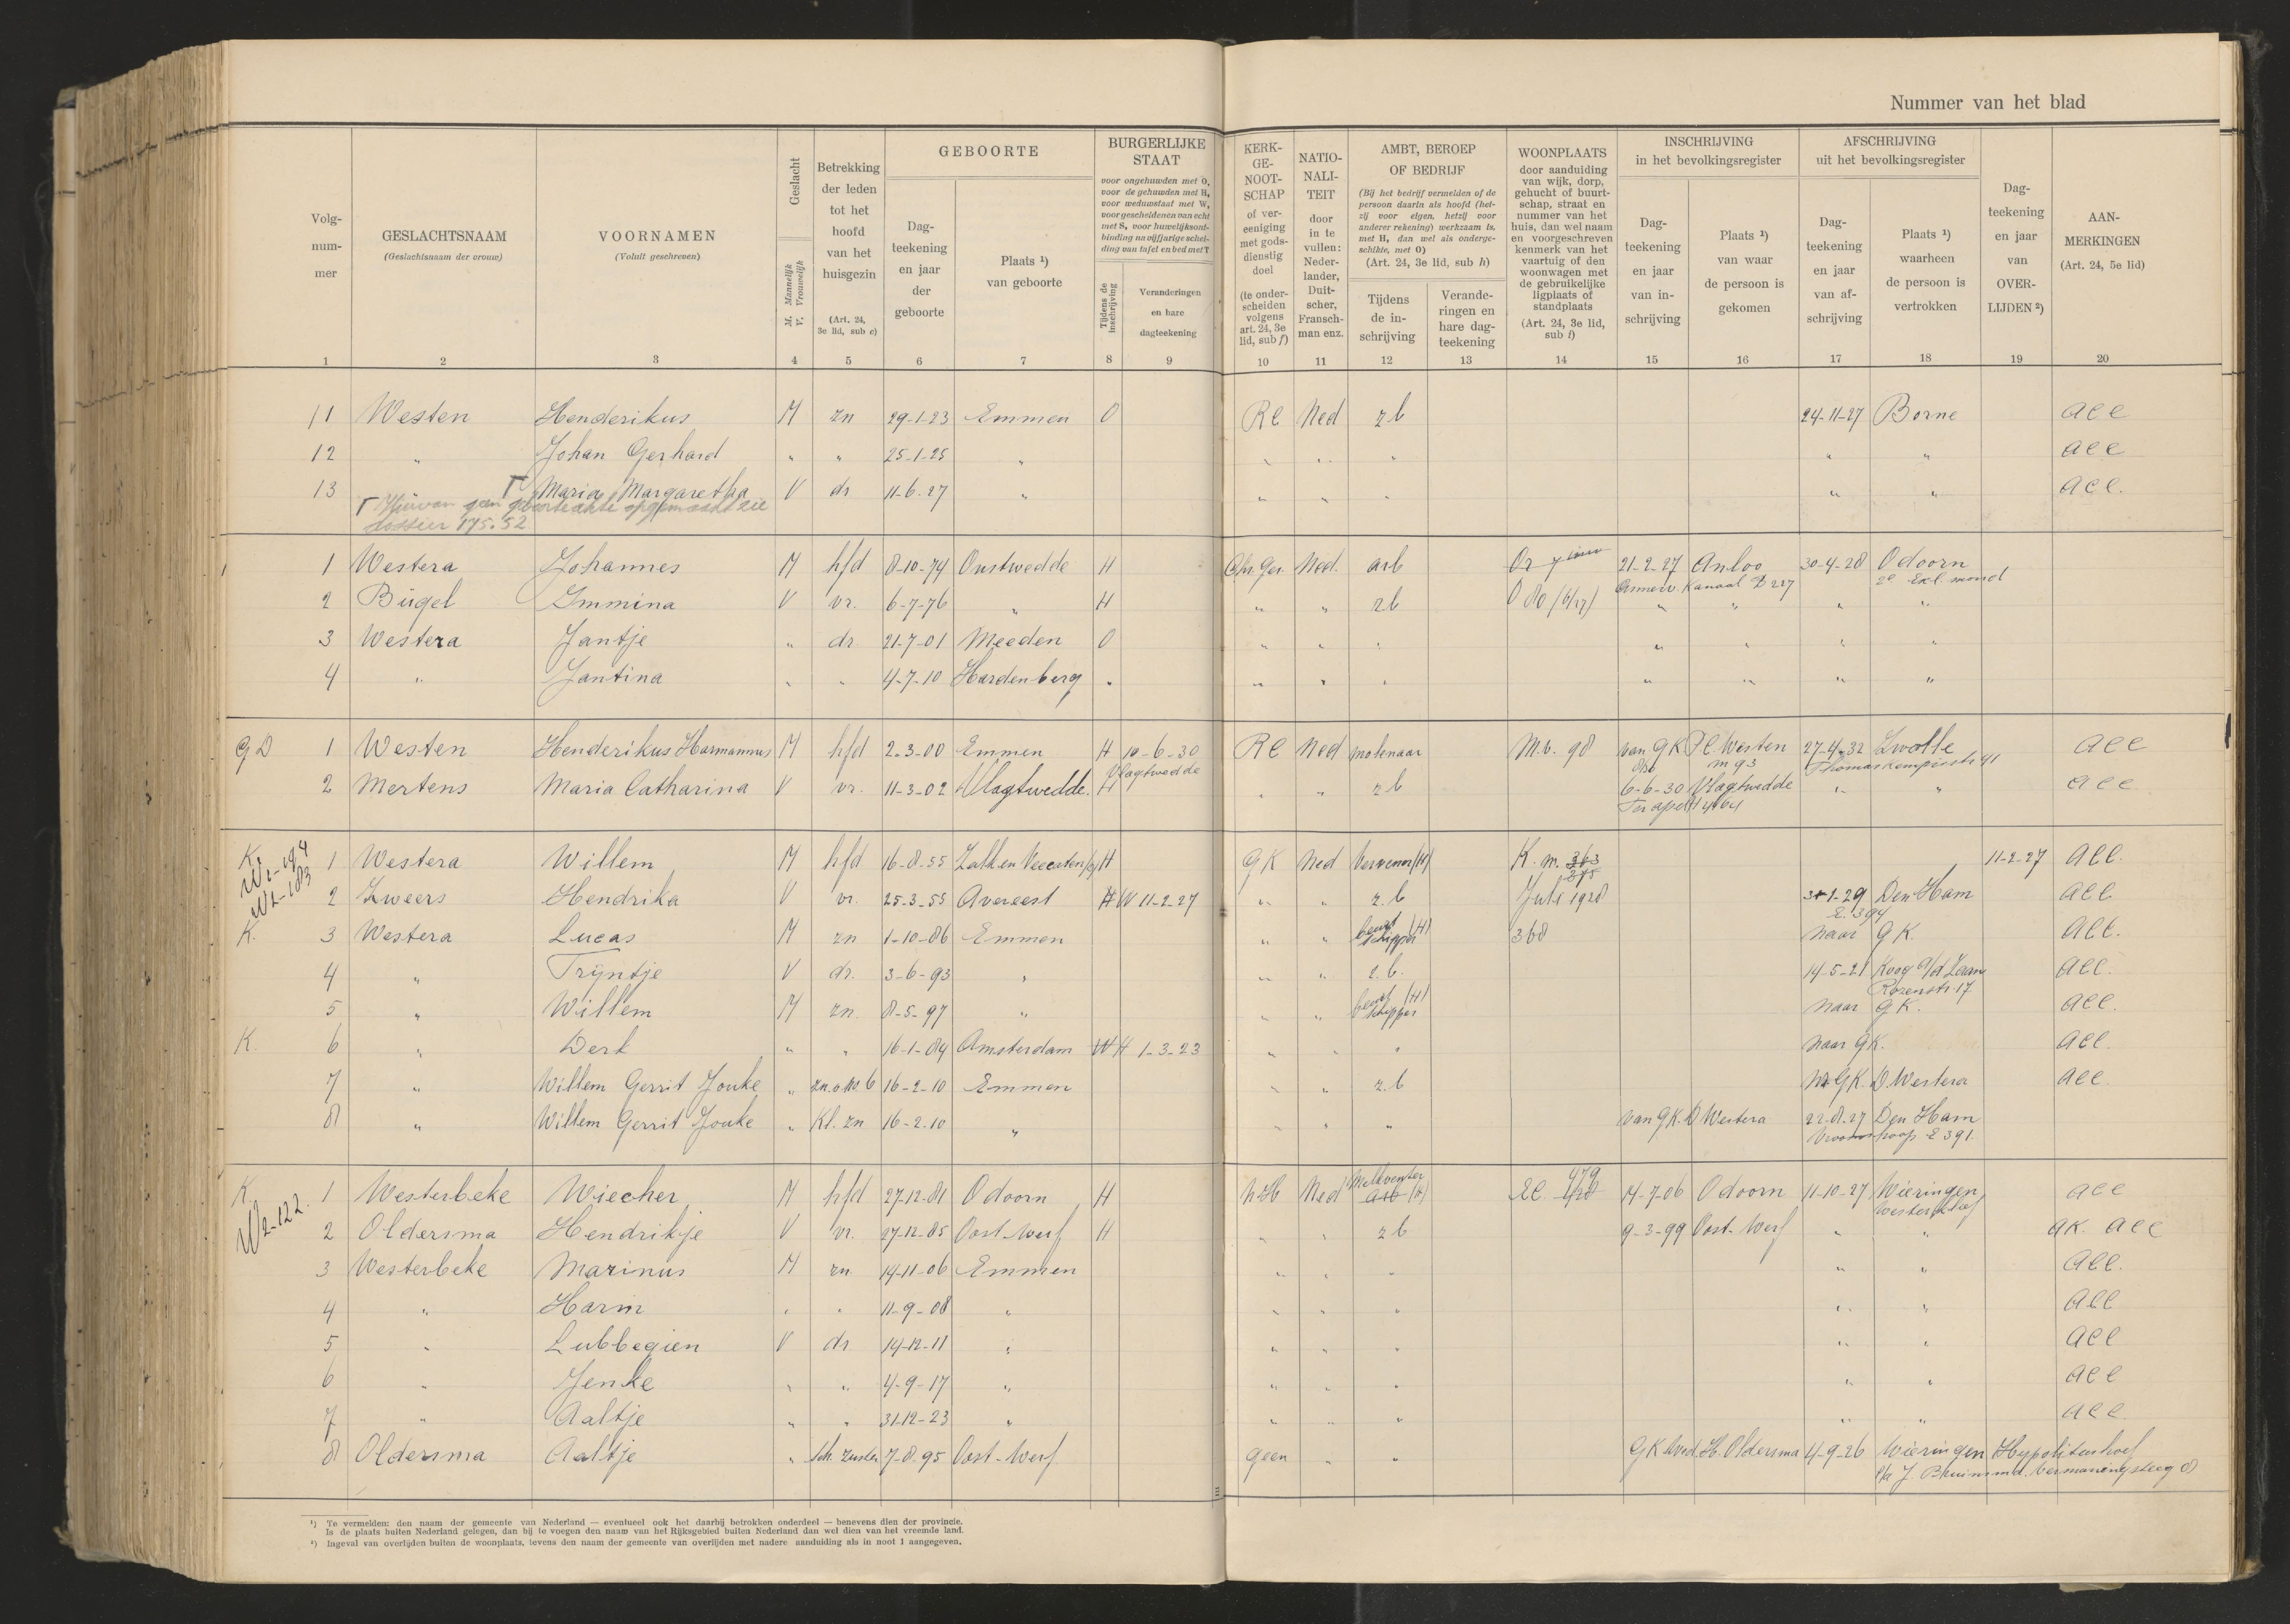 Nummer van het blad
Volgnummer
GESLACHTSNAAM
(Geslachtsnaam der vrouw)
VOORNAMEN
(Voluit geschreven)
Geslacht
M. Mannelijk
V. Vrouwelijk
Betrekking der leden tot het hoofd van het huisgezin
(Art. 24, 3e lid, sub c)
GEBOORTE
Dagteekening en jaar der geboorte
Plaats ¹) van geboorte
BURGERLIJKE STAAT
voor ongehuwden met O, voor de gehuwden met H, voor weduwstaat met W, voor gescheidenen van echt met S, voor huwelijksontbinding na vijfjarige scheiding van tafel en bed met T
Tijdens de inschrijving
Veranderingen en hare dagteekening
KERKGENOOTSCHAP
of vereeniging met godsdienstig doel
(te onderscheiden volgens art. 24, 3e lid, sub f)
NATIONALITEIT
door in te vullen: Nederlander, Duitscher, Franschman enz.
AMBT, BEROEP OF BEDRIJF
(Bij het bedrijf vermelden of de persoon daarin als hoofd (hetzij voor eigen, hetzij voor anderer rekening) werkzaam is, met H, dan wel als ondergeschikte, met O)
(Art. 24, 3e lid, sub h)
Tijdens de inschrijving
Veranderingen en hare dagteekening
WOONPLAATS
door aanduiding van wijk, dorp, gehucht of buurtschap, straat en nummer van het huis, dan wel naam en voorgeschreven kenmerk van het vaartuig of den woonwagen met de gebruikelijke ligplaats of standplaats
(Art. 24, 3e lid, sub i)
INSCHRIJVING in het bevolkingsregister
Dagteekening en jaar van inschrijving
Plaats ¹) van waar de persoon is gekomen
AFSCHRIJVING uit het bevolkingsregister
Dagteekening en jaar van afschrijving
Plaats ¹) waarheen de persoon is vertrokken
Dagteekening en jaar van OVERLIJDEN ²)
AANMERKINGEN
(Art. 24, 5e lid)
1 2 3 4 5 6 7 8 9 10 11 12 13 14 15 16 17 18 19 20
11 Westen Henderikus M zn 29-1-23 Emmen O RC Ned zb 24-11-27 Borne acc
12 " Johan Gerhard " " 25-1-25 " " " " " " acc
13 Maria Margaretha V dr 11-6-27 " " " " " " acc.
Hiervan geen geboorteakte opgemaakt zie
dossier 175.52
1 Westera Johannes M hfd 8-10-74 Onstwedde H Chr. Ger. Ned. arb Or 21-2-27 Anloo 30-4-28 Odoorn
Annerv. Kanaal D 227 2e Exl. mond
2 Bügel Immina V vr. 6-7-76 " H " " zb O 80 (6/27) " " " "
3 Westera Jantje " dr. 21-7-01 Meeden O " " " " " " "
4 " Jantina " " 4-7-10 Hardenberg " " " " " " " "
GD 1 Westen Henderikus Harmannus M hfd 2-3-00 Emmen H 10-6-30 RC Ned molenaar M.b. 98 van GK Westen 27-4-32 Zwolle acc
Vlagtwedde m 93 Thomas Kempisstr 41
2 Mertens Maria Catharina V vr. 11-3-02 Vlagtwedde. H " " zb 6-6-30 Vlagtwedde " " acc
Ter apel
K. 1 Westera Willem M hfd 16-8-55 Zalk en Veecaten H GK Ned Vervener (H) K. m. 363 11-2-27 acc.
W2-194
W2-183
375
2 Zweers Hendrika V vr. 25-3-55 Avereest H W 11-2-27 " " z.b Juli 1928 31-1-29 Den Ham acc.
E. 394
K. 3 Westera Lucas M zn 1-10-86 Emmen " " beurt schipper (H) 368 naar GK. acc.
4 " Trijntje V dr. 3-6-93 " " " z.b. 14-5-21 Koog a/d Zaan acc.
Rozenstr. 17
5 " Willem M zn. 8-5-97 " " " beurt schipper (H) naar GK. acc.
K. 6 " Derk " " 16-1-84 Amsterdam W H 1-3-23 " " " naar GK. acc.
7 " Willem Gerrit Jouke " zn. v. no. 6 16-2-10 Emmen " " z.b nr GK. D. Westera acc.
8 " Willem Gerrit Jouke " Kl. zn 16-2-10 " " " " van GK. D Westera 22-8-27 Den Ham
Vroomshoop E 391.
K. 1 Westerbeke Wiecher M hfd 27-12-81 Odoorn H N.H Ned Melkventer 479 14-7-06 Odoorn 11-10-27 Wieringen acc
W2-122. arb (H) 428 Westerklief
2 Oldersma Hendrikje V vr. 27-12-85 Oost-Werf H " " zb 9-3-99 Oost-Werf " " GK. acc
3 Westerbeke Marinus M zn 14-11-06 Emmen " " " " " acc.
4 " Harm " " 11-9-08 " " " " " " acc
5 " Lubbegien V dr 14-12-11 " " " " " " acc
6 " Jenke " " 4-9-17 " " " " " " acc
7 " Aaltje " " 31-12-23 " " " " " " acc.
8 Oldersma Aaltje " sch. zuster 7-8-95 Oost-Werf geen " " GK Wed. H. Oldersma 4-9-26 Wieringen Hypolitushoef
p/a J. Bruin
¹) Te vermelden: den naam der gemeente van Nederland — eventueel ook het daarbij betrokken onderdeel — benevens dien der provincie.
Is de plaats buiten Nederland gelegen, dan bij te voegen den naam van het Rijksgebied buiten Nederland dan wel dien van het vreemde land.
²) Ingeval van overlijden buiten de woonplaats, tevens den naam der gemeente van overlijden met nadere aanduiding als in noot 1 aangegeven.